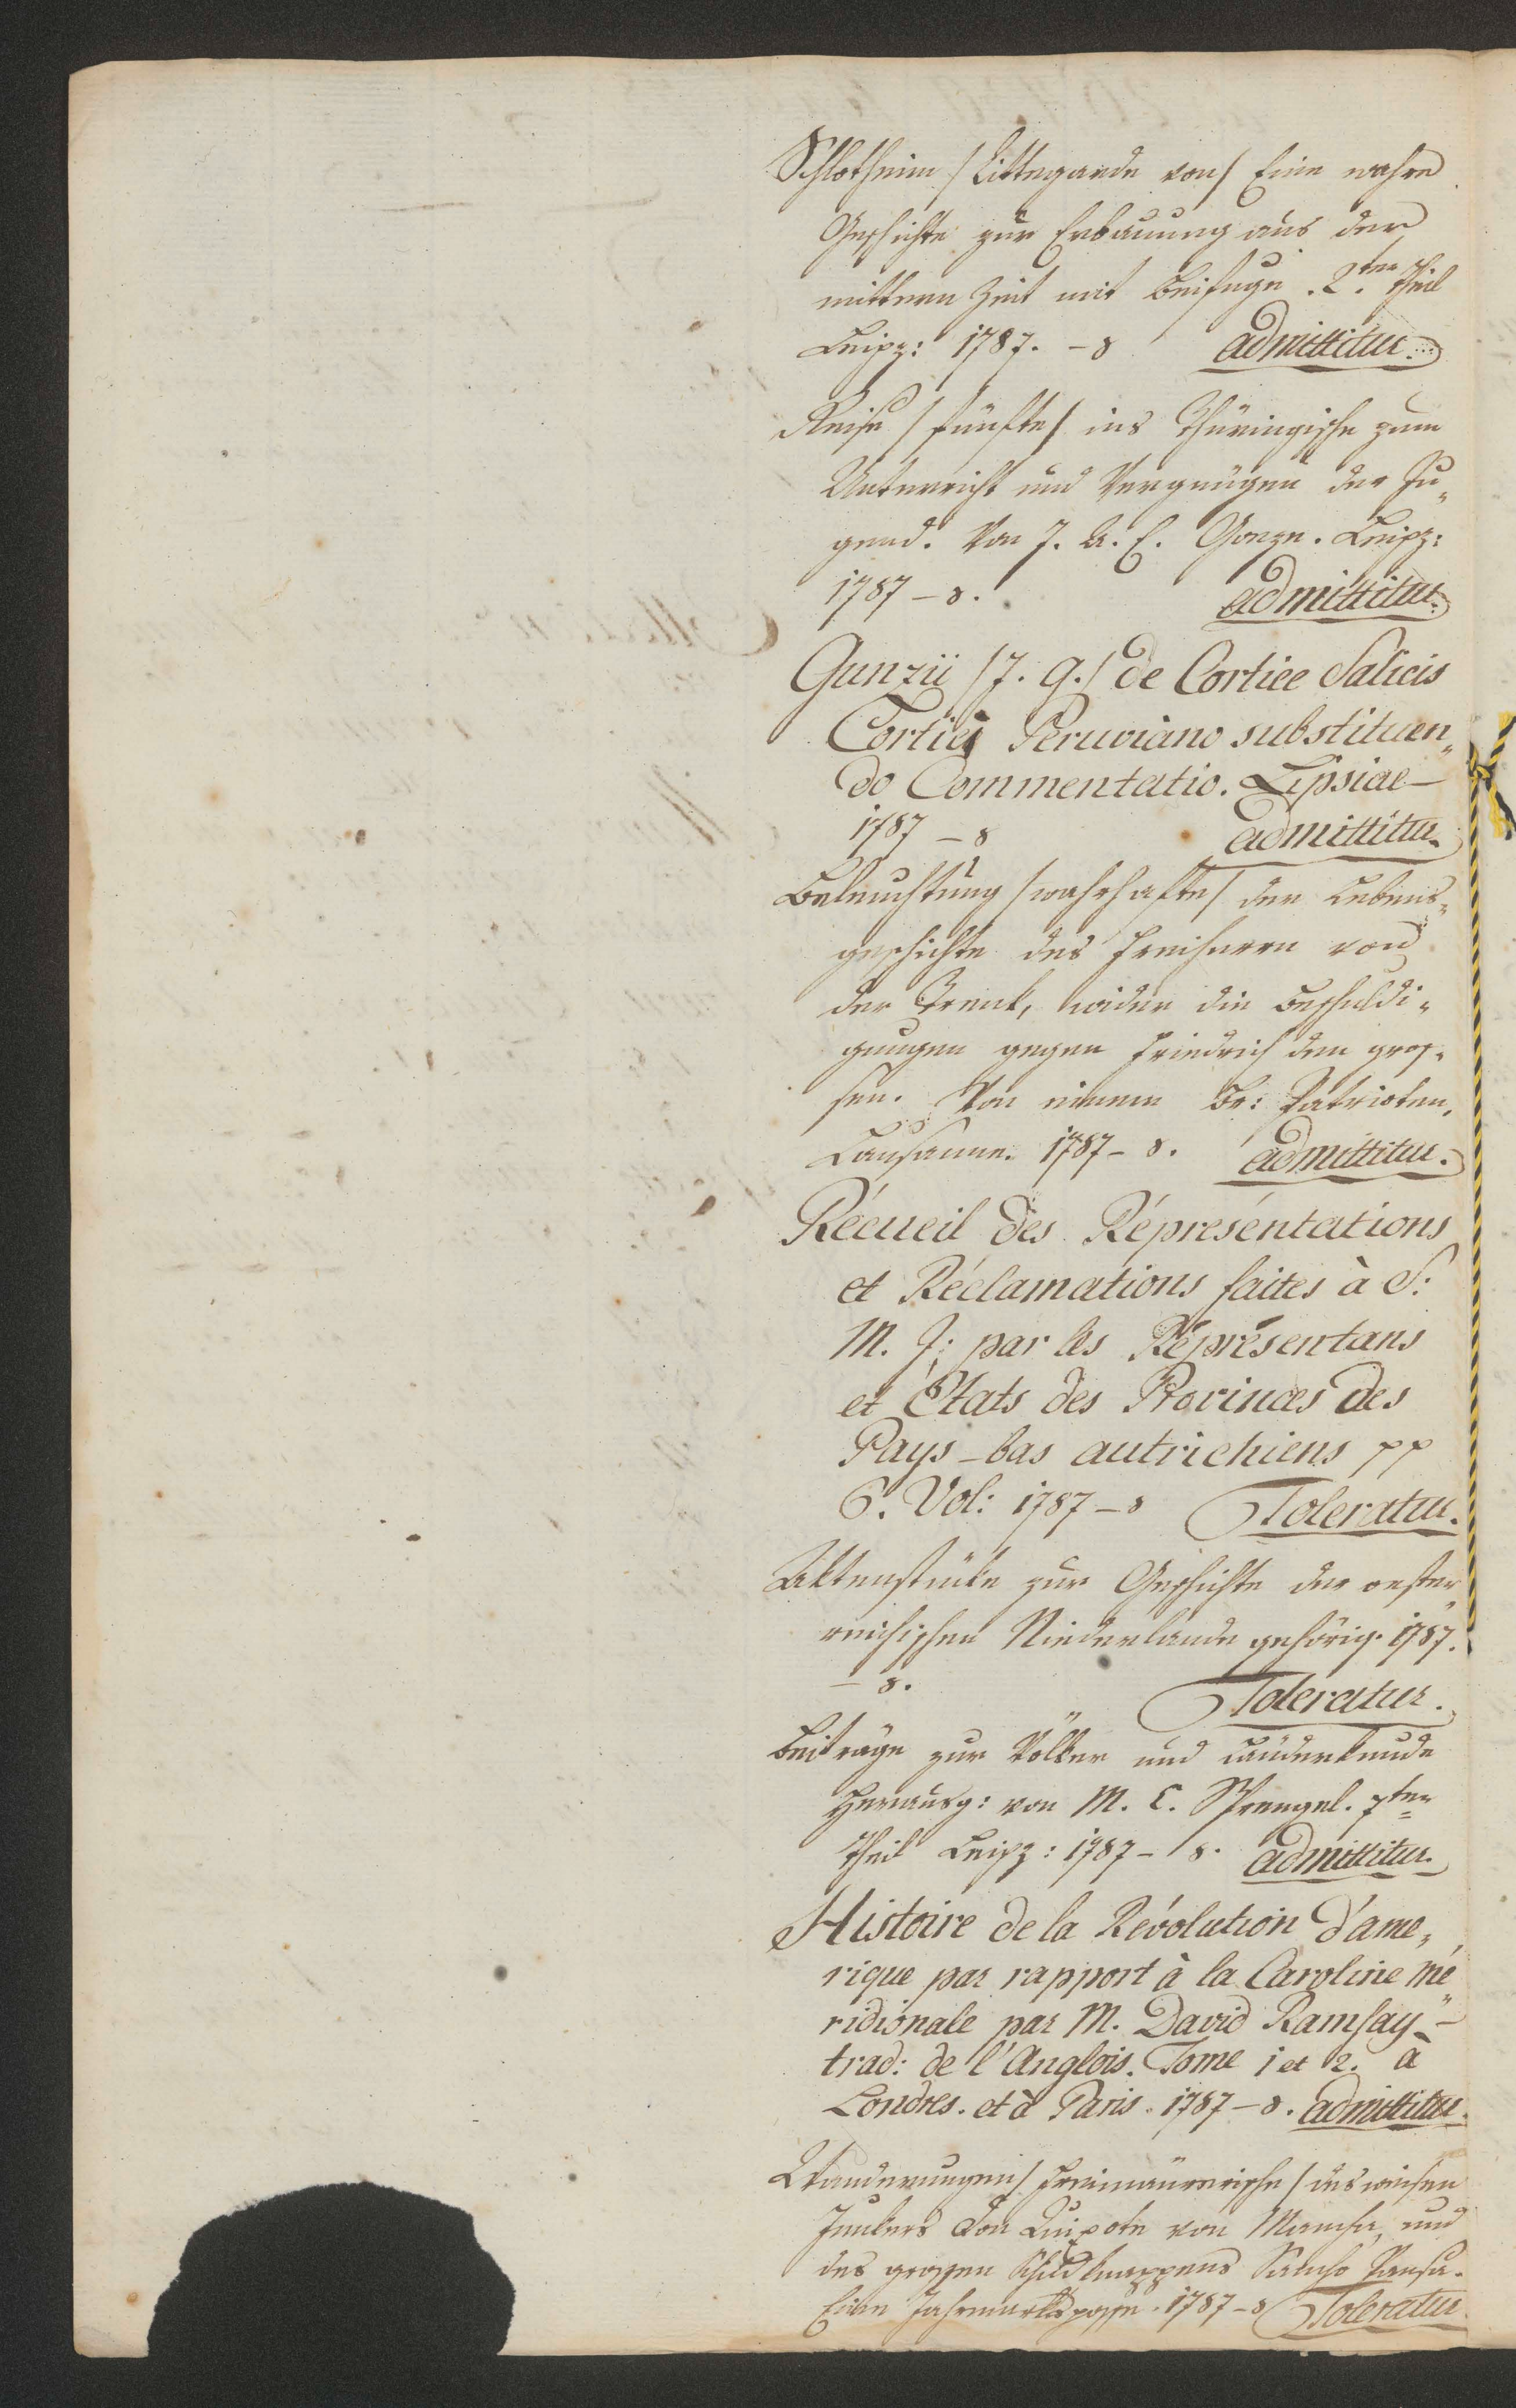 Schlotheim /Littegarde von/ Eine wahre
Geschichte zur Erbauung aus der
mittern Zeit mit Beifuge. 2.ter Theil
Leipz: 1787. – 8 admittitur.
Reise /fünfte/ ins Thüringische zum
Unterricht und Vergnügen der Ju„
gend. Von J. A. C. Gonze. Leipz:
1787 – 8. admittitur.
Gunzii /J. G./ de Cortice Salicis
Cortici Peruviano substituen„
do Commentatio. Lipsiae –
1787 – 8 admittitur.
Beleuchtung /wahrhafte/ der Lebens„
geschichte des Freiherrn von
der Trenk, wider die Beschuldi„
gungen gegen Friedrich den gros„
sen. Von einem Br: Patrioten.
Lausanne. 1787 – 8. admittitur.
Récueil des Réprésentations
et Réclamations faites à S:
M. J: par les Réprésentans
et États des Provinces des
Pays-bas autrichiens pp
6. Vol: 1787 – 8 Toleratur.
Aktenstücke zur Geschichte der oester„
reichischen Niederlande gehörig. 1787.
– 8. Toleratur.
Beiträge zur Völker und Länderkunde
Herausg: von M. C. Sprengel. 7ter
Theil Leipz: 1787 – 8. admittitur.
Histoire de la Révolution d'ame„
rique par rapport à la Caroline mé„
ridionale par M. David Ramsay –
trad: de l'Anglois. Tome 1 et 2. à
Londres. et à Paris. 1787 – 8. admittitur.
Wanderungen /Freimäurerische/ des weisen
Junkers Don Quixote von Mancha, und
des grossen Schildknappens Sancho Pansa.
Eine Jahrmarktsposse. 1787 – 8 Toleratur.